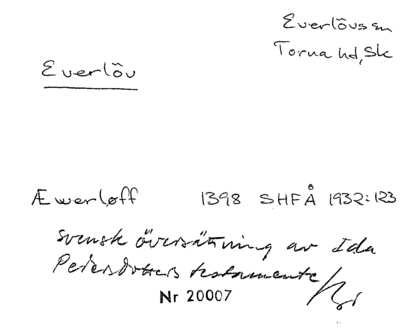 Everlövs sn
Torna hd, Sk
Everlöv
Æwerløff 1398 SHFÅ 1932:123
svensk översättning av Ida
Petersdotters testamente
Nr 20007